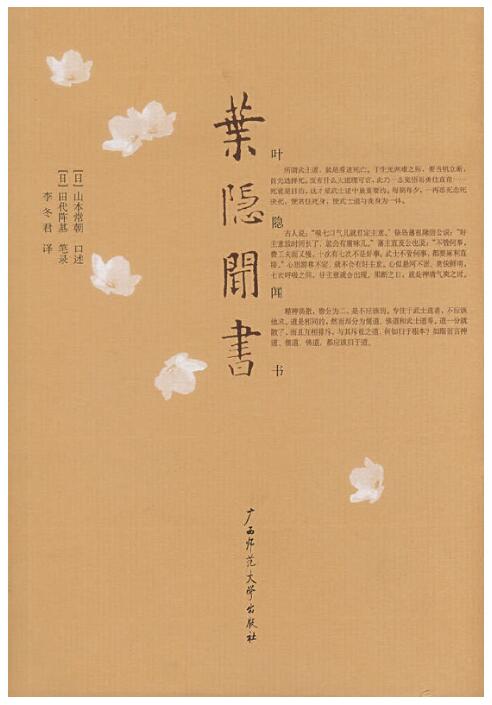 葉隠聞書
叶隐闻书
所谓武士道，就是看透死亡。于生死两难之际，要当机立断，
首先选择死。没有什么大道理可言，此乃一念觉悟而勇往直前……
死就是目的，这才是武士道中最重要的。每朝每夕，一再思死念死
决死，便常住死身，使武士道与我身为一体。
古人说："吸七口气儿就打定主意。"锅岛藩祖隆信公说："好
主意放时间长了，就会有腐味儿。"藩主直茂公也说："不管何事，
费工夫而又慢，十次有七次不是好事。武士不管何事，都要麻利直
接。"心思游移不定，就不会有好主意。心似悬河不滞，爽快鲜明，
七次呼吸之间，好主意就会出现。果断之日，就是神清气爽之时。
精神涣散，物分为二，是不应该的。专注于武士道者，不应该
他求。道是相同的，然而却分为儒道、佛道和武士道等。道一分就
散了，而且互相排斥，与其斥他之道，何如归于根本？如斯言神
道、儒道、佛道，都应该归于道。
[日] 山本常朝 口述
[日] 田代阵基 笔录
李冬君 译
广西师范大学出版社